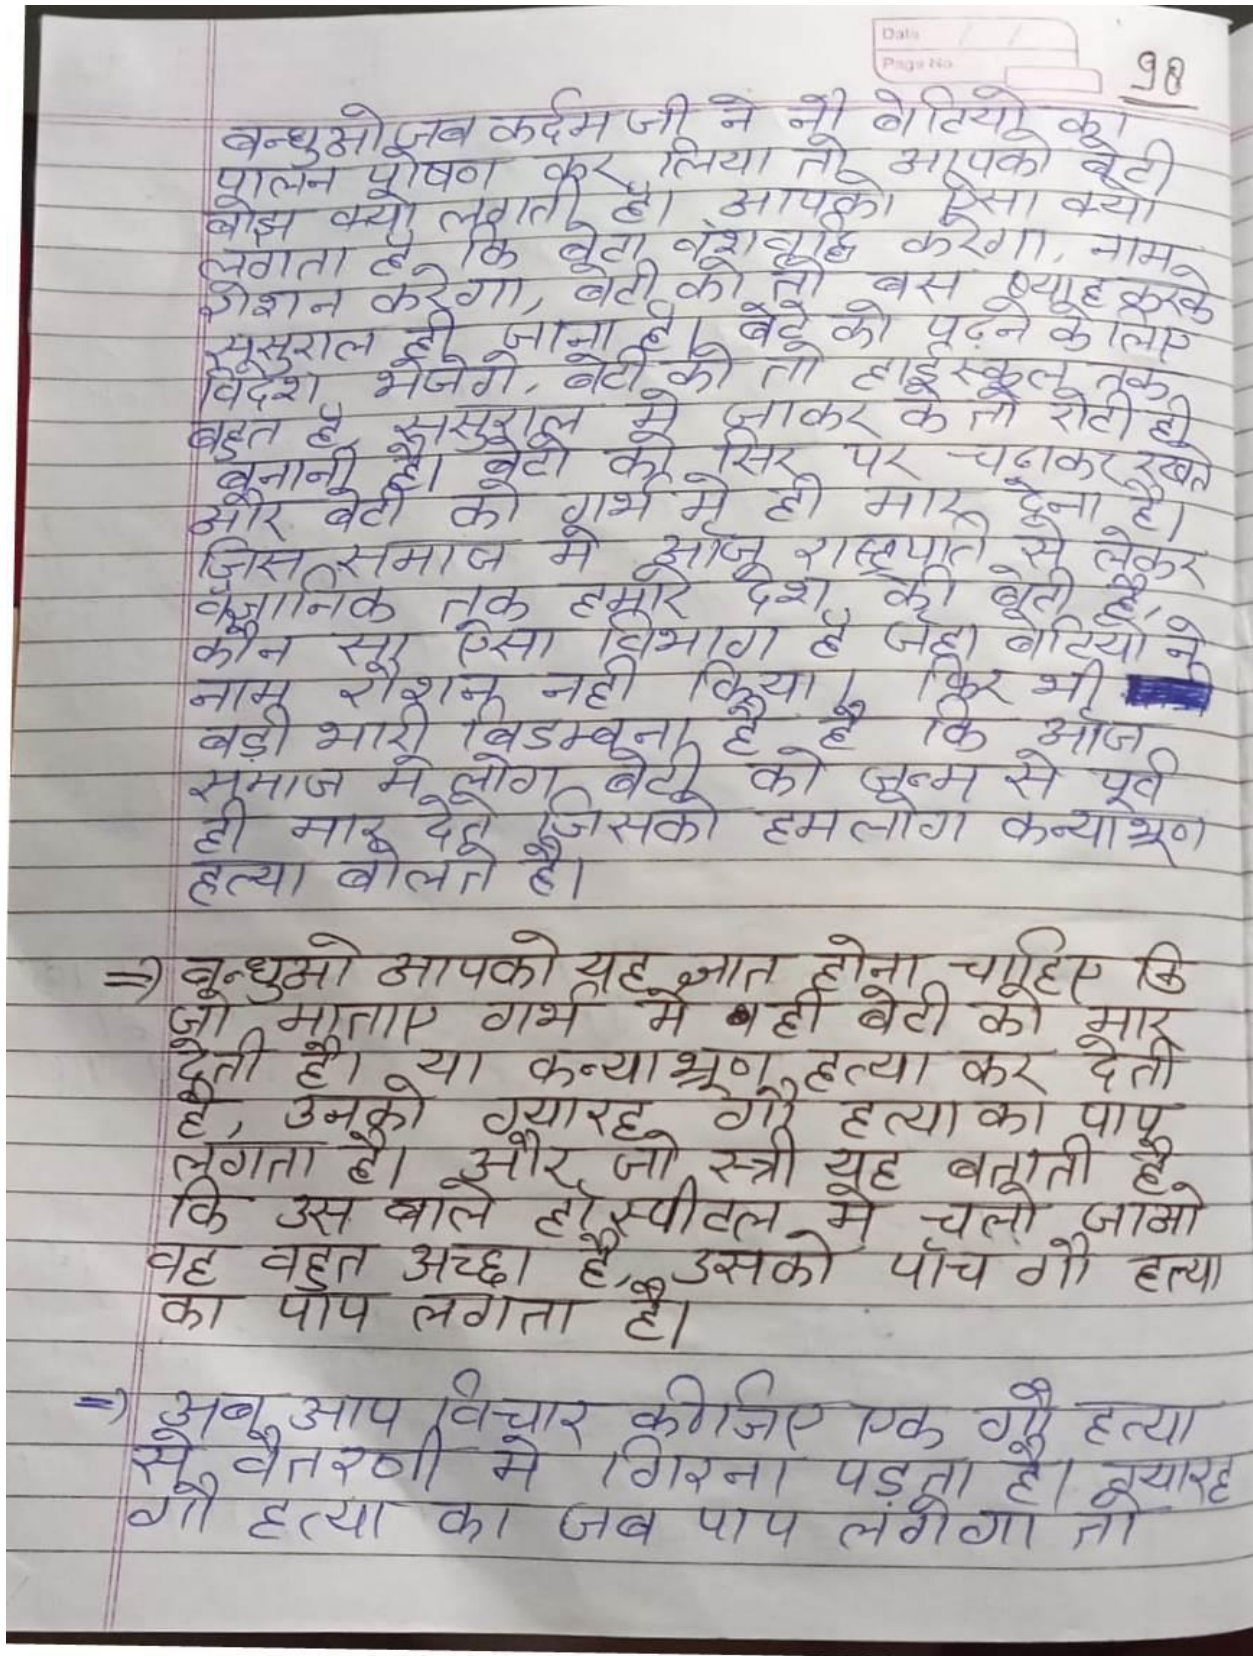 Date / /
Page No
98
बन्धुओ जब कर्दम जी ने नौ बेटियो का
पालन पोषण कर लिया तो आपको बेटी
बोझ क्यो लगती है। आपको ऐसा क्यो
लगता है कि बेटा वंशवृद्धि करेगा, नाम
रोशन करेगा, बेटी को तो बस ब्याह करके
ससुराल ही जाना है। बेटे को पढ़ने के लिए
विदेश भेजेगे, बेटी को तो हाईस्कूल तक
बहुत है ससुराल मे जाकर के तो रोटी ही
बनानी है। बेटो को सिर पर चढाकर रखते
और बेटी को गर्भ मे ही मार देना है।
जिस समाज मे आज राष्ट्रपति से लेकर
वैज्ञानिक तक हमारे देश की बेटी है,
कौन सा ऐसा विभाग है जहा बेटियो ने
नाम रोशन नही किया। फिर भी
बड़ी भारी विडम्बना है है कि आज
समाज मे लोग बेटी को जन्म से पूर्व
ही मार देते जिसको हमलोग कन्याभ्रूण
हत्या बोलते है।
=> बन्धुओ आपको यह ज्ञात होना चाहिए कि
जो माताए गर्भ मे ही बेटी को मार
देती है। या कन्याभ्रूण हत्या कर देती
है, उनको ग्यारह गौ हत्या का पाप
लगता है। और जो स्त्री यह बताती है
कि उस बाले हॉस्पीटल मे चलो जाओ
वह वहुत अच्छा है, उसको पॉच गौ हत्या
का पाप लगता है।
=> अब आप विचार कीजिए एक गौ हत्या
से वैतरणी मे गिरना पड़ता है। ग्यारह
गौ हत्या का जब पाप लगेगा तो